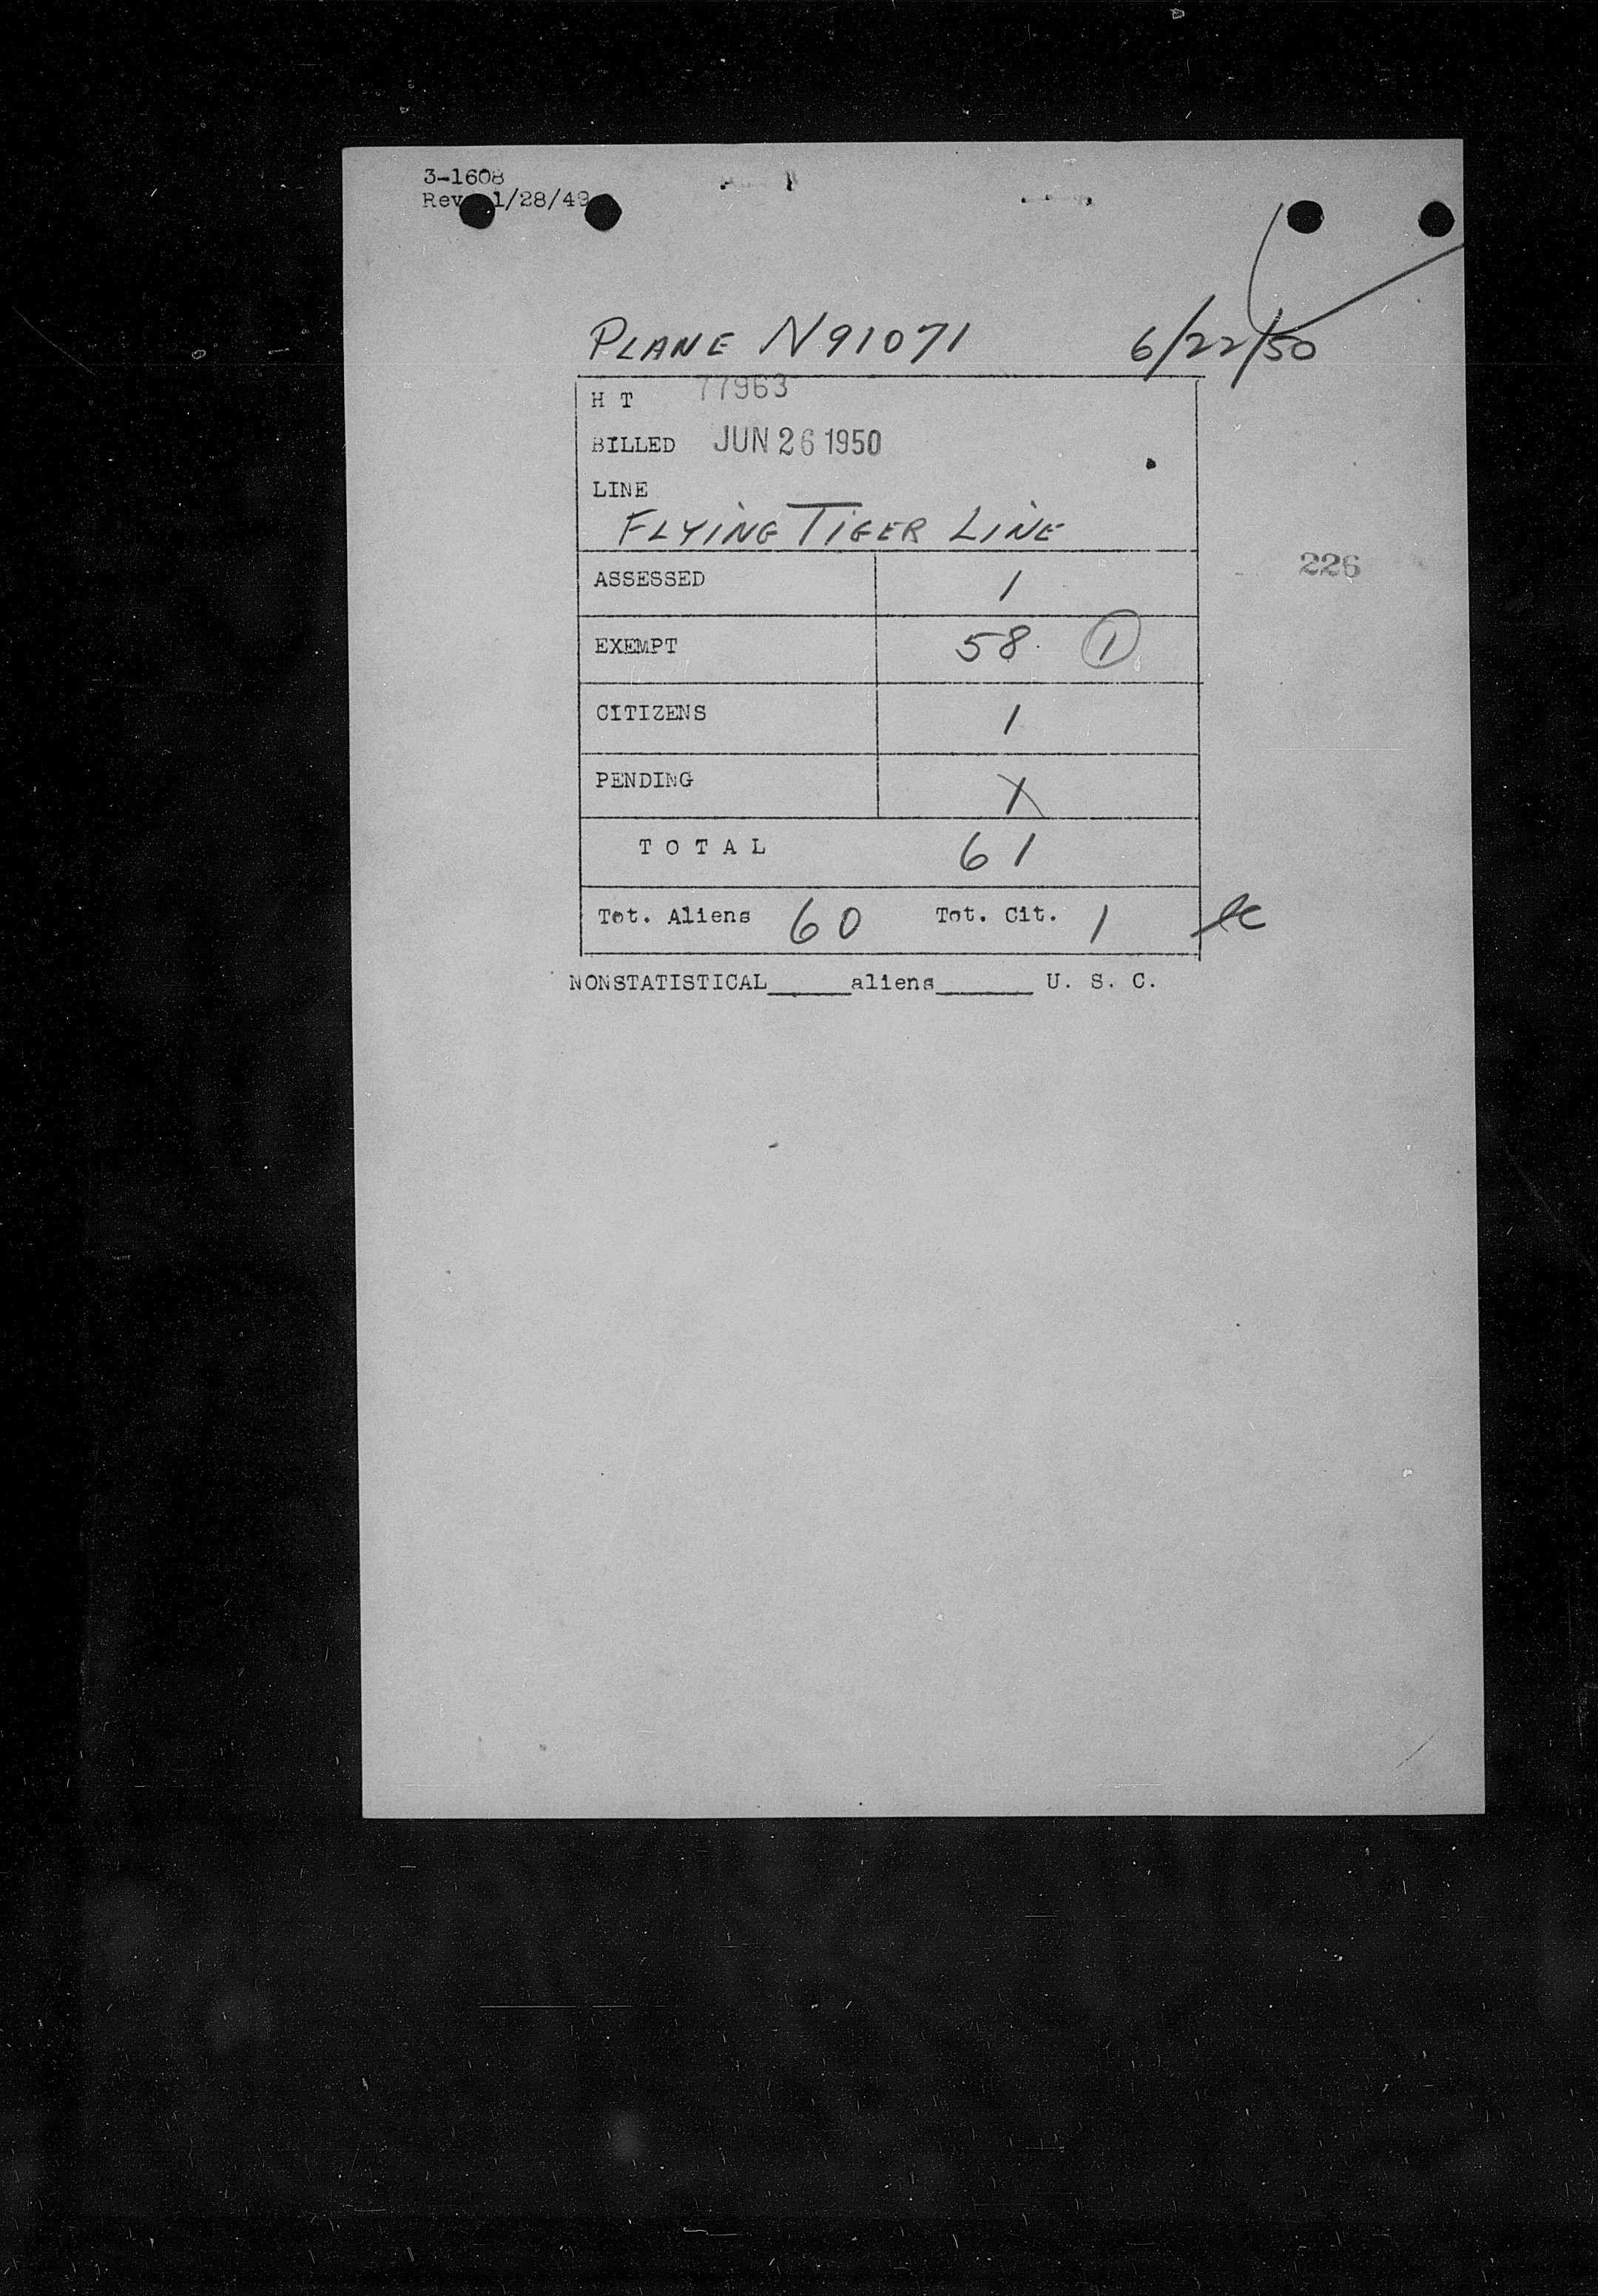 3-1608
Rev. 1/28/49
PLANE N91071 6/22/50
H T 77963
BILLED JUN 26 1950
LINE
FLYING TIGER LINE
226
ASSESSED 1
EXEMPT 58 1
CITIZENS 1
PENDING X
T O T A L 61
Tot. Aliens 60 Tot. Cit. 1
NONSTATISTICAL_____aliens______ U. S. C.